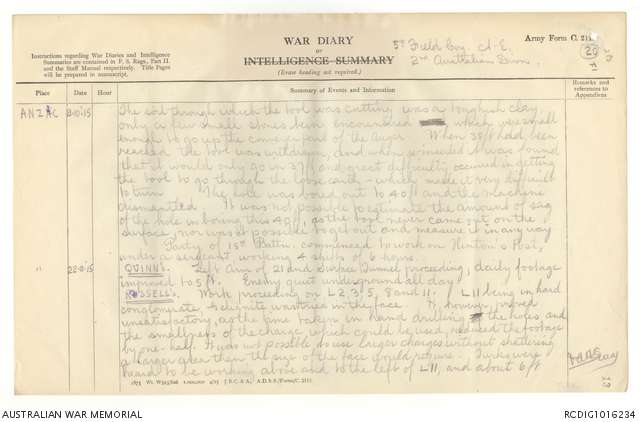 WAR DIARY
or
INTELLIGENCE SUMMARY
(Erase heading not required.)
Instructions regarding War Diaries and Intelligence
Summaries are contained in F. S. Regs., Part II.
and the Staff Manual respectively. Title Pages
will be prepared in manuscript.
5th Field Coy. A.E.
2nd Australian Divn.
Army Form C. 2118
20
Place
Date
Hour
Summary of Events and Information
Remarks and
references to
Appendices
ANZAC
The soil through which the tool was cutting was a toughish clay,
only a few small stones being encountered which were small
enough to go up the conveyor part of the auger. When 38 ft had been
reached the tool was withdrawn, and when reinserted it was found
that it would only go in 37 ft and great difficulty occurred in getting
the tool to go through the loose earth, which made it very difficult
to turn. The hole was bored out to 40 ft and the machine
dismantled. It was not possible to estimate the amount of sag
of the hole in boring this 40 ft, as the tool never came out on the
surface, nor was it possible to get out and measure it in any way.
Party of 15th Battn. commenced to work on Hinton's Post,
under a sergeant working 4 shifts of 6 hours.
" 28-10-15 QUINN'S. Left Arm of 21 and Surface Tunnel proceeding, daily footage
improved to 5 ft. Enemy quiet underground all day.
RUSSELL'S. Work proceeding on L2, 3, 5, 8 and 11. L11 being in hard
conglomerate, gelignite was tried in the face. It however, proved
unsatisfactory, as the time taken in hand drilling the holes, and
the smallness of the charge which could be used, reduced the footage
by one-half. It was not possible to use larger charges without shattering
a larger area than the size of the face would require. Turks were
heard to be working above and to the left of L11, and about 6 ft
1875 Wt. W593/826 1,000,000 4/15 J.B.C. & A. A.D.S.S./Forms/C. 2118.
AUSTRALIAN WAR MEMORIAL
RCDIG1016234